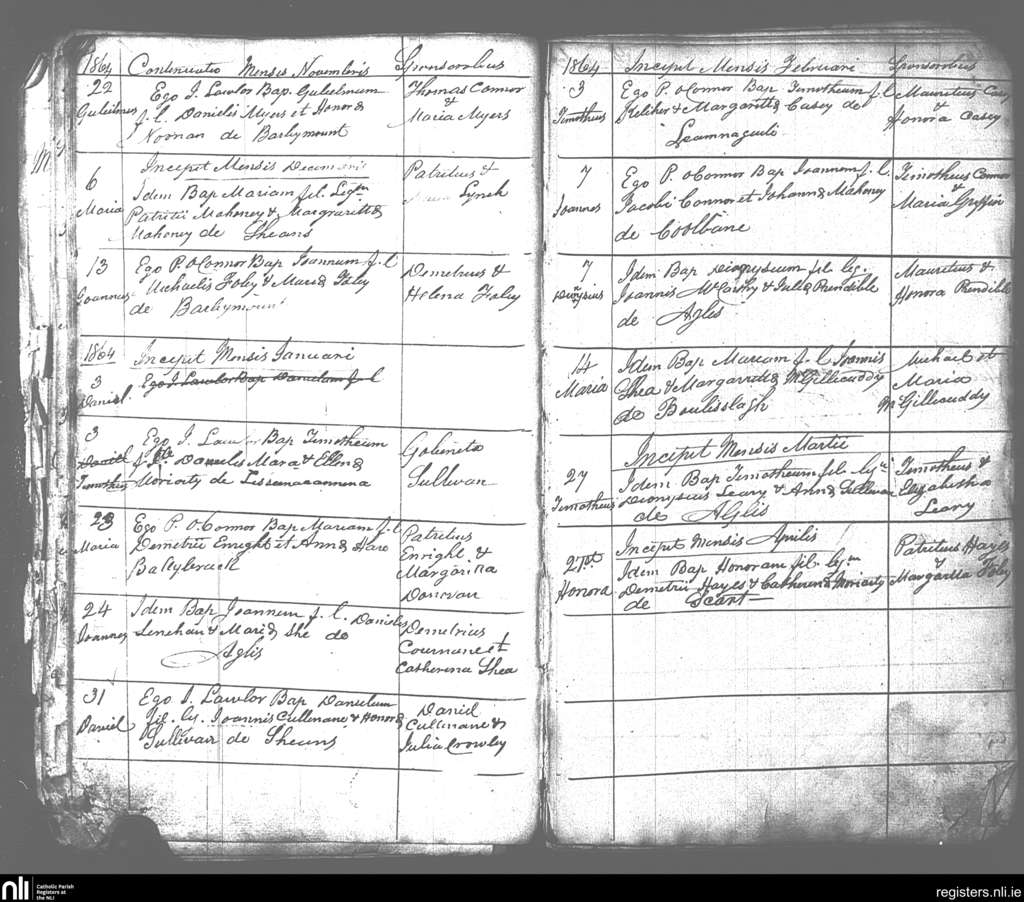 1864 Continuatio Mensis Novembris Sponsoribus
22 Ego J. Lawlor Bap. Gulielmum Thomas Connor
Gulielmus f. l. Danielis Myers et Honoræ &
Noonan de Barlymount Maria Myers
Incepit Mensis Decembris
6 Idem Bap Mariam fil. Legm Patritius &
Maria Patritii Mahoney & Margrarettæ Lynch
Mahoney de Sheans
13 Ego P. O'Connor Bap Joannum f. l Demetrius &
Joannus Michaelis Foley & Mariæ Foley Helena Foley
de Barlymount
1864 Incepit Mensis Januari
3 Ego J. Lawlor Bap Danielum f. l
Daniel
3 Ego J. Lawlor Bap Timotheum Gobineta
Daniel f. l. Danielis Mara & Ellenæ Sullivan
Timotheus Moriarty de
23 Ego P. O.Connor Bap Mariam f. l Patritius
Maria Demetrii Enright et Annæ Hare Enright &
Ballybrack Margarita
Donovan
24 Idem Bap Joannem f. l. Danielis Demetrius
Joannes Lenehan & Mariæ She de Cournane et
Aglis Catherina Shea
31 Ego J. Lawlor Bap Danielum Daniel
Daniel fil. lg. Joannis Cullinane & Honoræ Cullinane &
Sullivan de Sheans Julia Crowley
1864 Incepit Mensis Februari Sponsoribus
3 Ego P. O'Connor Bap Timotheum f. l Mauritius Casey
Timotheus Keliher & Margarettæ Casey de &
Leamnaguili Honora Casey
7 Ego P. O'Connor Bap Joannem f. l. Timotheus Connor
Joannes Jacobi Connor et Johannæ Mahoney &
de Coolbane Maria Griffin
7 Idem Bap Dionysium fil. lg. Mauritius &
Dionysius Joannis McCarthy & Juliæ Prendible Honora Prendible
de Aglis
14 Idem Bap Mariam f. l Joannis Michael et
Maria Shea & Margarettæ McGillicuddy Maria
de Boulisslagh McGillicuddy
Incepit Mensis Martii
27 Idem Bap Timotheum fil. lgm Timotheus &
Timotheus Dionysius Leary & Annæ Sullivan Elizabetha
de Aglis Leary
Incepit Mensis Aprilis
27st Idem Bap Honoram fil. lgm Patritius Hayes
Honora Demetrii Hayes & Catherinæ Moriarty &
de Scart Margarita Foley
nli Catholic Parish
Registers at
the NLI
registers.nli.ie